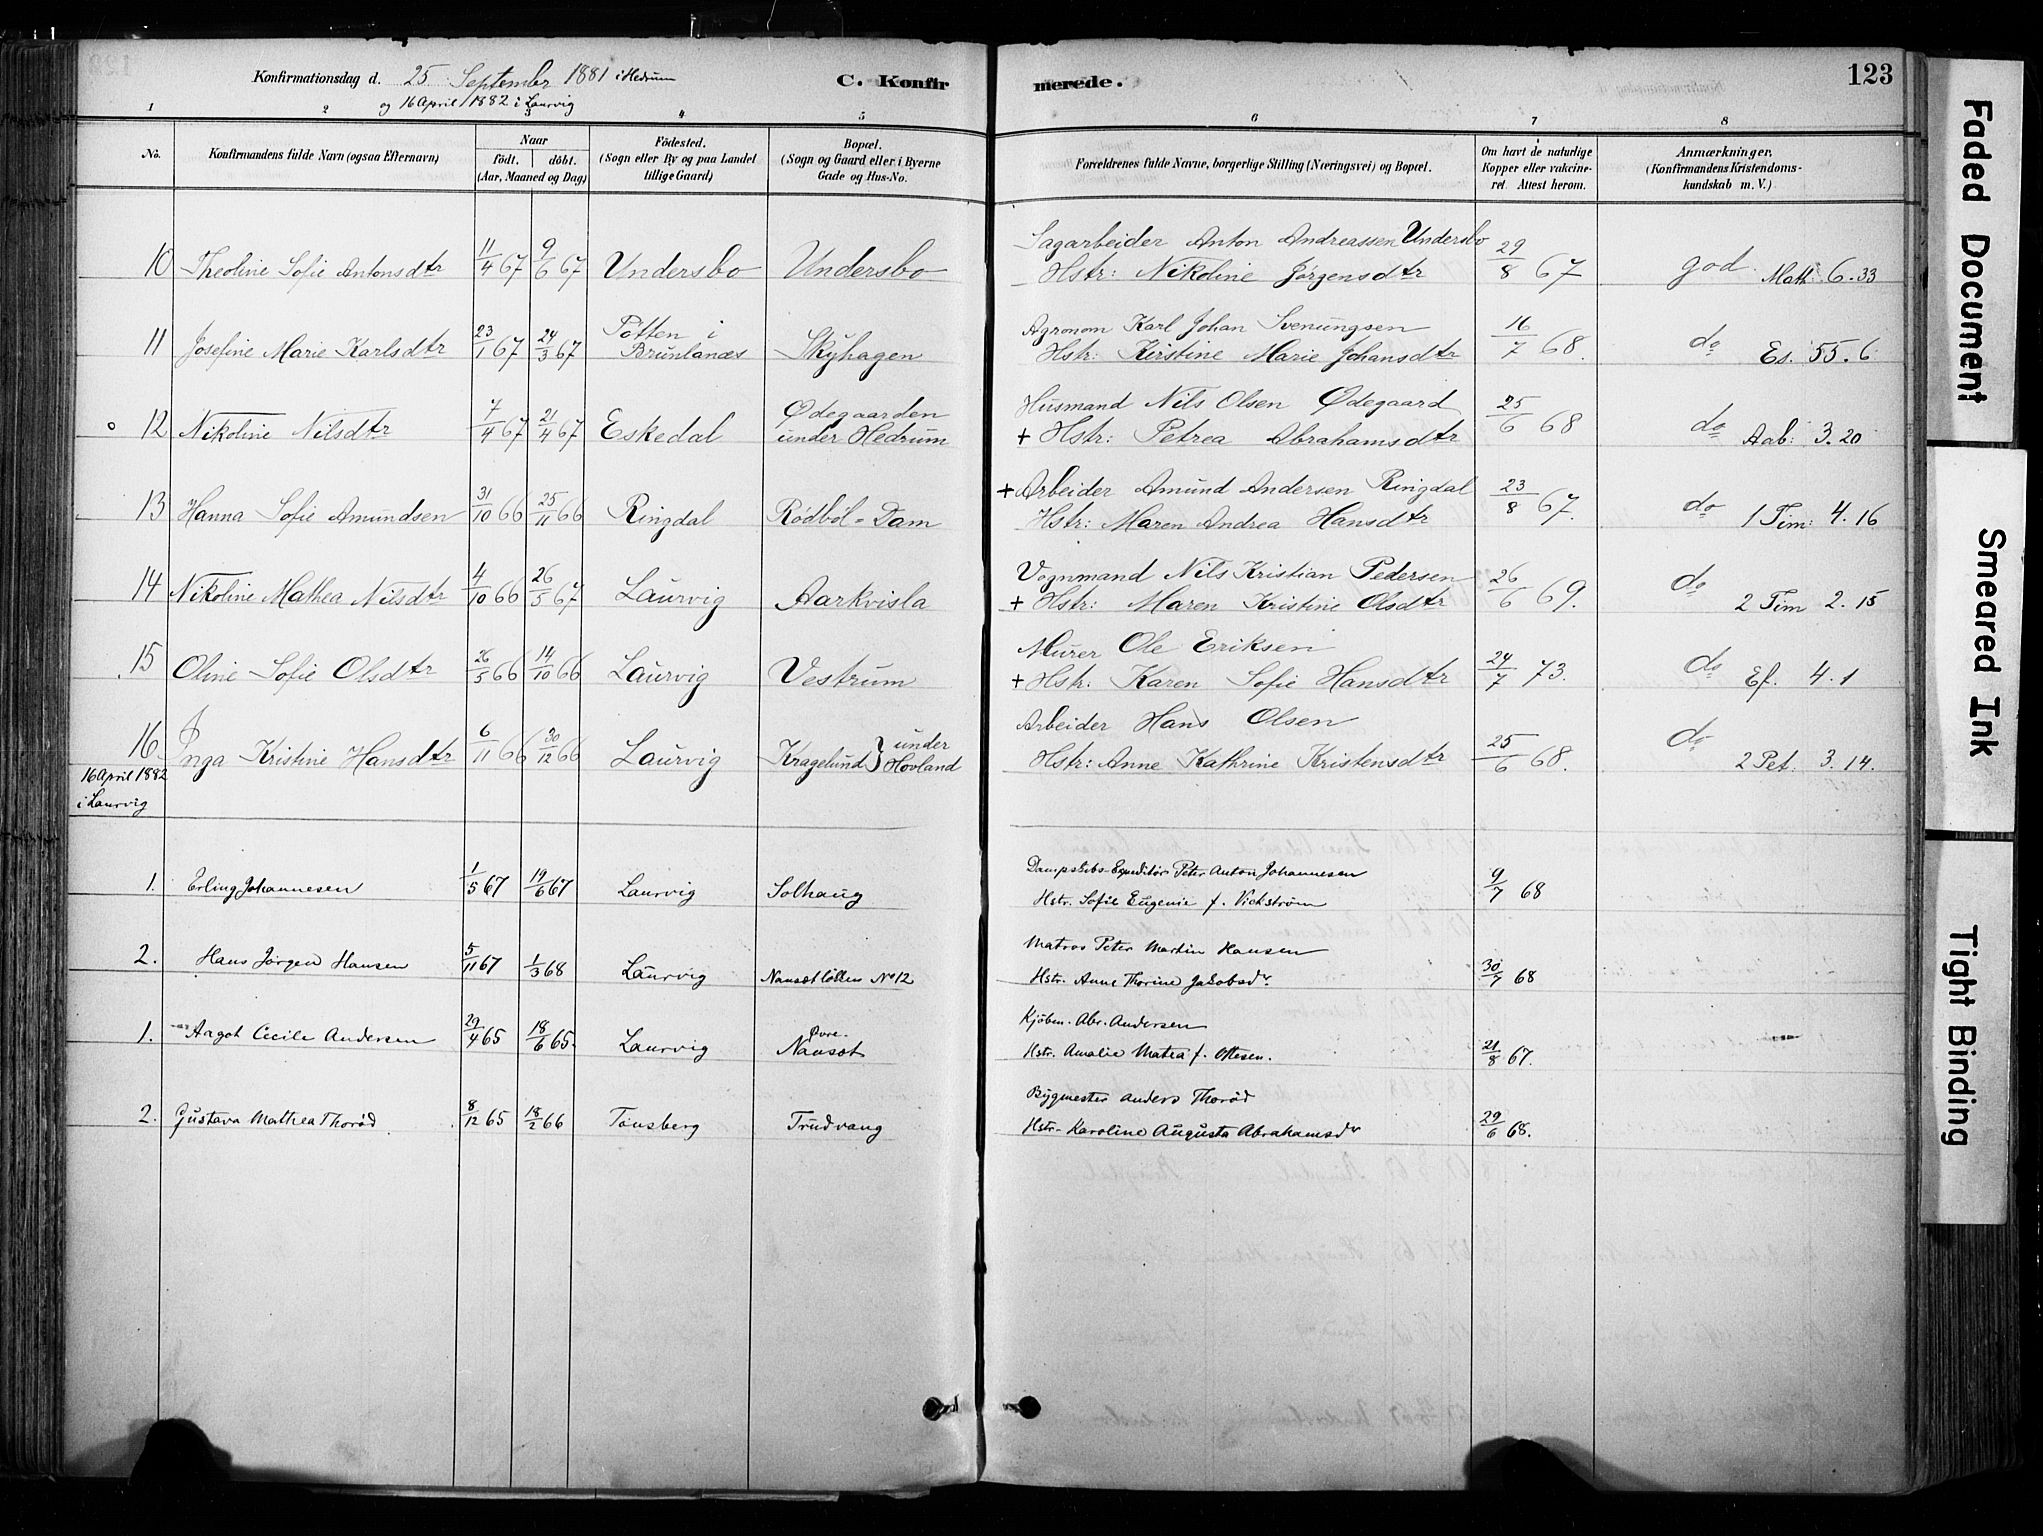 Konfirmationsdag d. 25 September 1881 i Hedrum
og 16 April 1882 i Laurvig
C. Konfirmerede.
123
1 2 3 4 5 6 7 8
No.
Konfirmandens fulde Navn (ogsaa Efternavn)
Naar
födt. döbt.
(Aar, Maaned og Dag)
Födested.
(Sogn eller By og paa Landet
tillige Gaard)
Bopæl.
(Sogn og Gaard eller i Byerne
Gade og Hus-No.
Forældrenes fulde Navne, borgerlige Stilling (Næringsvei) og Bopæl.
Om havt de naturlige
Kopper eller vakcine-
ret. Attest herom.
Anmærkninger,
(Konfirmandens Kristendoms-
kundskab m. V.)
Sagarbeider Anton Andreassen Undersbo
10 Theoline Sofie Antonsdtr 11/4 67 9/6 67 Undersbo Undersbo Hstr: Nikoline Jörgensdtr 29/8 67 god Math: 6.33
Pötten i Agronom Karl Johan Svenungsen
11 Josefine Marie Karlsdtr 23/1 67 24/3 67 Brunlanæs Skyhagen Hstr: Kirstine Marie Johansdtr 16/7 68. do Es. 55.6
Ødegaarden Husmand Nils Olsen Ødegaard
12 Nikoline Nilsdtr 7/4 67 21/4 67 Eskedal under Hedrum + Hstr: Petrea Abrahamsdtr 25/6 68 do Aab: 3.20
+ Arbeider Amund Andersen Ringdal
13 Hanna Sofie Amundsen 31/10 66 25/11 66 Ringdal Rödböl-Dam Hstr: Maren Andrea Hansdtr 23/8 67. do 1 Tim: 4.16
Vognmand Nils Kristian Pedersen
14 Nikoline Mathea Nilsdtr 4/10 66 26/5 67 Laurvig Aarkvisla + Hstr: Maren Kristine Olsdtr 26/6 69. do 2 Tim 2.15
Murer Ole Eriksen
15 Oline Sofie Olsdtr 26/5 66 14/10 66 Laurvig Vestrum + Hstr. Karen Sofie Hansdtr 24/7 73. do Ef. 4.1
under Arbeider Hans Olsen
16 Inga Kristine Hansdtr 6/11 66 30/12 66 Laurvig Kragelund } Hovland Hstr: Anne Kathrine Kristensdtr 25/6 68. do 2 Pet. 3.14.
16 April 1882
i Laurvig
Dampskibs-Expeditör Peter Anton Johannesen
1. Erling Johannesen 1/5 67 19/6 67 Laurvig Solhaug Hstr. Sofie Eugenie f. Vickström 9/7 68
Matros Peter Martin Hansen
2. Hans Jörgen Hansen 5/11 67 1/3 68 Laurvig Nansetløkken No 12 Hstr. Anne Thorine Jakobsdr. 30/7 68
Øvre- Kjöbm. Abr. Andersen
1. Aagot Cecilie Andersen 29/4 65 18/6 65. Laurvig Nanset Hstr. Amalie Matea f. Ottesen. 21/8 67.
Bygmester Anders Thoröd
2. Gustava Mathea Thoröd 8/12 65 18/2 66 Tönsberg Trudvang Hstr. Karoline Augusta Abrahamsdr 29/6 68.
Faded Document
Smeared Ink
Tight Binding